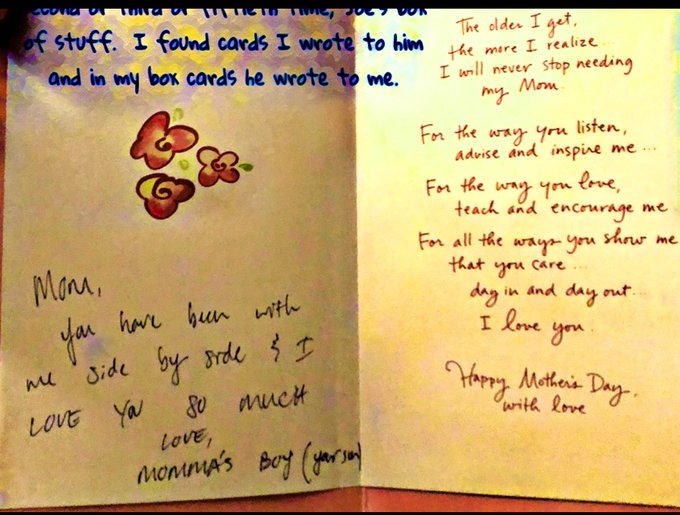 second or third or fiftieth time, Joe's box
of stuff. I found cards I wrote to him
and in my box cards he wrote to me.
Mom,
you have been with
me side by side & I
LOVE YOU SO MUCH
LOVE,
MOMMA'S BOY (your son)
The older I get,
the more I realize
I will never stop needing
my Mom.
For the way you listen,
advise and inspire me...
For the way you love,
teach and encourage me
For all the ways you show me
that you care...
day in and day out...
I love you.
Happy Mother's Day,
with love